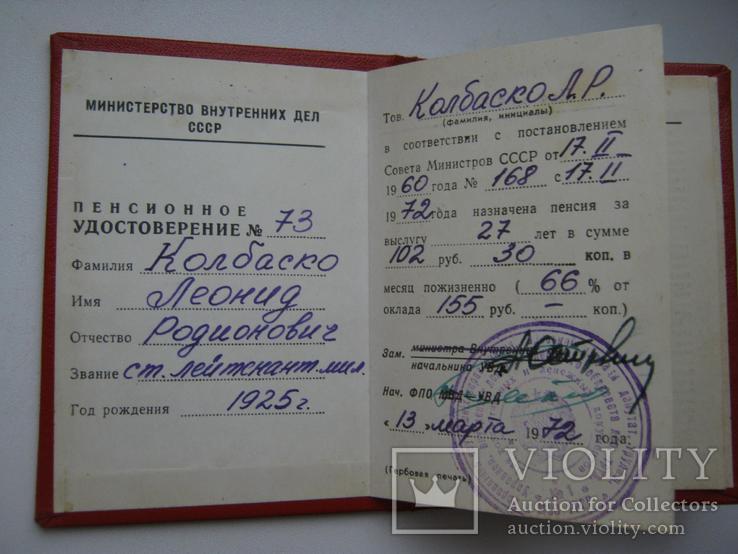 МИНИСТЕРСТВО ВНУТРЕННИХ ДЕЛ
СССР
ПЕНСИОННОЕ
УДОСТОВЕРЕНИЕ № 73
Фамилия Колбаско
Имя Леонид
Отчество Родионович
Звание ст. лейтенант мил.
Год рождения 1925 г.
Тов. Колбаско Л.Р.
(фамилия, инициалы)
в соответствии с постановлением
Совета Министров СССР от 17.II
1960 года № 168 с 17.II
1972 года назначена пенсия за
выслугу 27 лет в сумме
102 руб. 30 коп. в
месяц пожизненно ( 66 % от
оклада 155 руб. — коп.)
Зам. министра Внутренних
начальника УВД
Нач. ФПО МВД—УВД
« 13 » марта 1972 года.
(Гербовая печать)
VIOLITY
Auction for Collectors
auction.violity.com